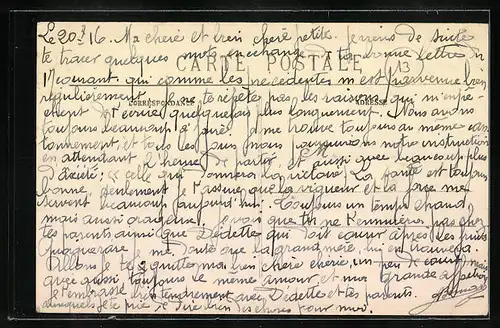 Le 20 16. Ma chère et bien chère petite. je viens de suite
te tracer quelques mots en échange de ta bonne lettre du
CARTE POSTALE
13 courant qui comme les précédentes m'est parvenue bien
régulièrement. je ne te répète pas les raisons qui m'empê-
CORRESPONDANCE
ADRESSE
chent t'écrire quelquefois plus longuement. Nous avons
toujours beaucoup à faire. je me trouve toujours au même can-
tonnement, et tous les jours nous notre instruction
en attendant l'heure de partir, et aussi avec beaucoup plus
d'anxiété: celle qui donnera la victoire. La santé est toujours
bonne, seulement je t'assure que la vigueur et la force me
servent beaucoup aujourd'hui. Toujours un temps chaud
mais aussi orageux. je vois que tu ne t'ennuieras pas chez
tes parents ainsi que Dédette qui doit courir après les fruits
je me doute que la grand'mère lui en trouvera.
Allons je te quitte ma bien chère chérie, un peu de courage mais
avec aussi toujours le même amour et ma grande affection
je t'embrasse bien tendrement avec Dédette et tes parents.
auxquels je te prie de dire bien des choses pour moi.